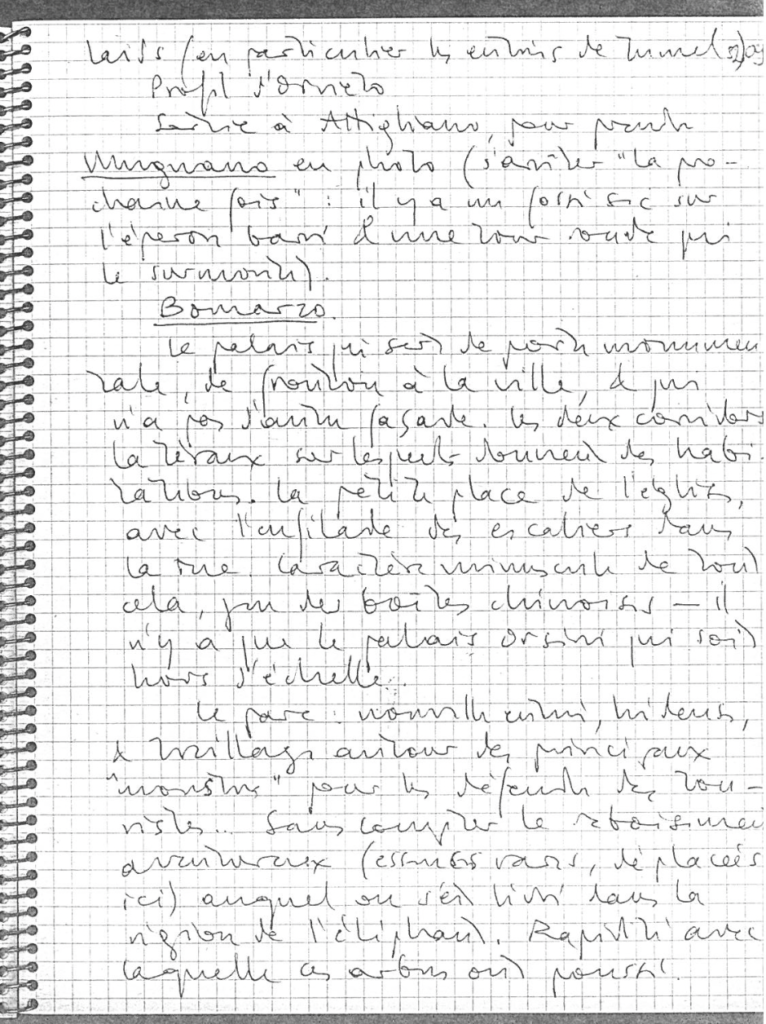 laids (en particulier les entrées de tunnel
Profil d'Orvieto
Sortie à Attigliano, pour prendre
Mugnano en photo (s'arrêter "la pro-
chaine fois" : il y a un fossé sec sur
l'éperon barré & une tour ronde qui
le surmonte).
Bomarzo.
Le palais qui sert de porte monumen
tale, de fronton à la ville, & qui
n'a pas d'autre façade. Les deux corridors
latéraux sur lesquels donnent des habi-
tations. La petite place de l'église,
avec l'enfilade des escaliers dans
la rue. Caractère minuscule de tout
cela, jeu des boîtes chinoises — il
n'y a que le palais Orsini qui soit
hors d'échelle.
Le parc : nouvelle entrée, hideuse,
& treillage autour des principaux
"monstres" pour les défendre des tou-
ristes... Sans compter le reboisement
aventureux (essences rares, déplacées
ici) auquel on s'est livré dans la
région de l'éléphant. Rapidité avec
laquelle ces arbres ont poussé.